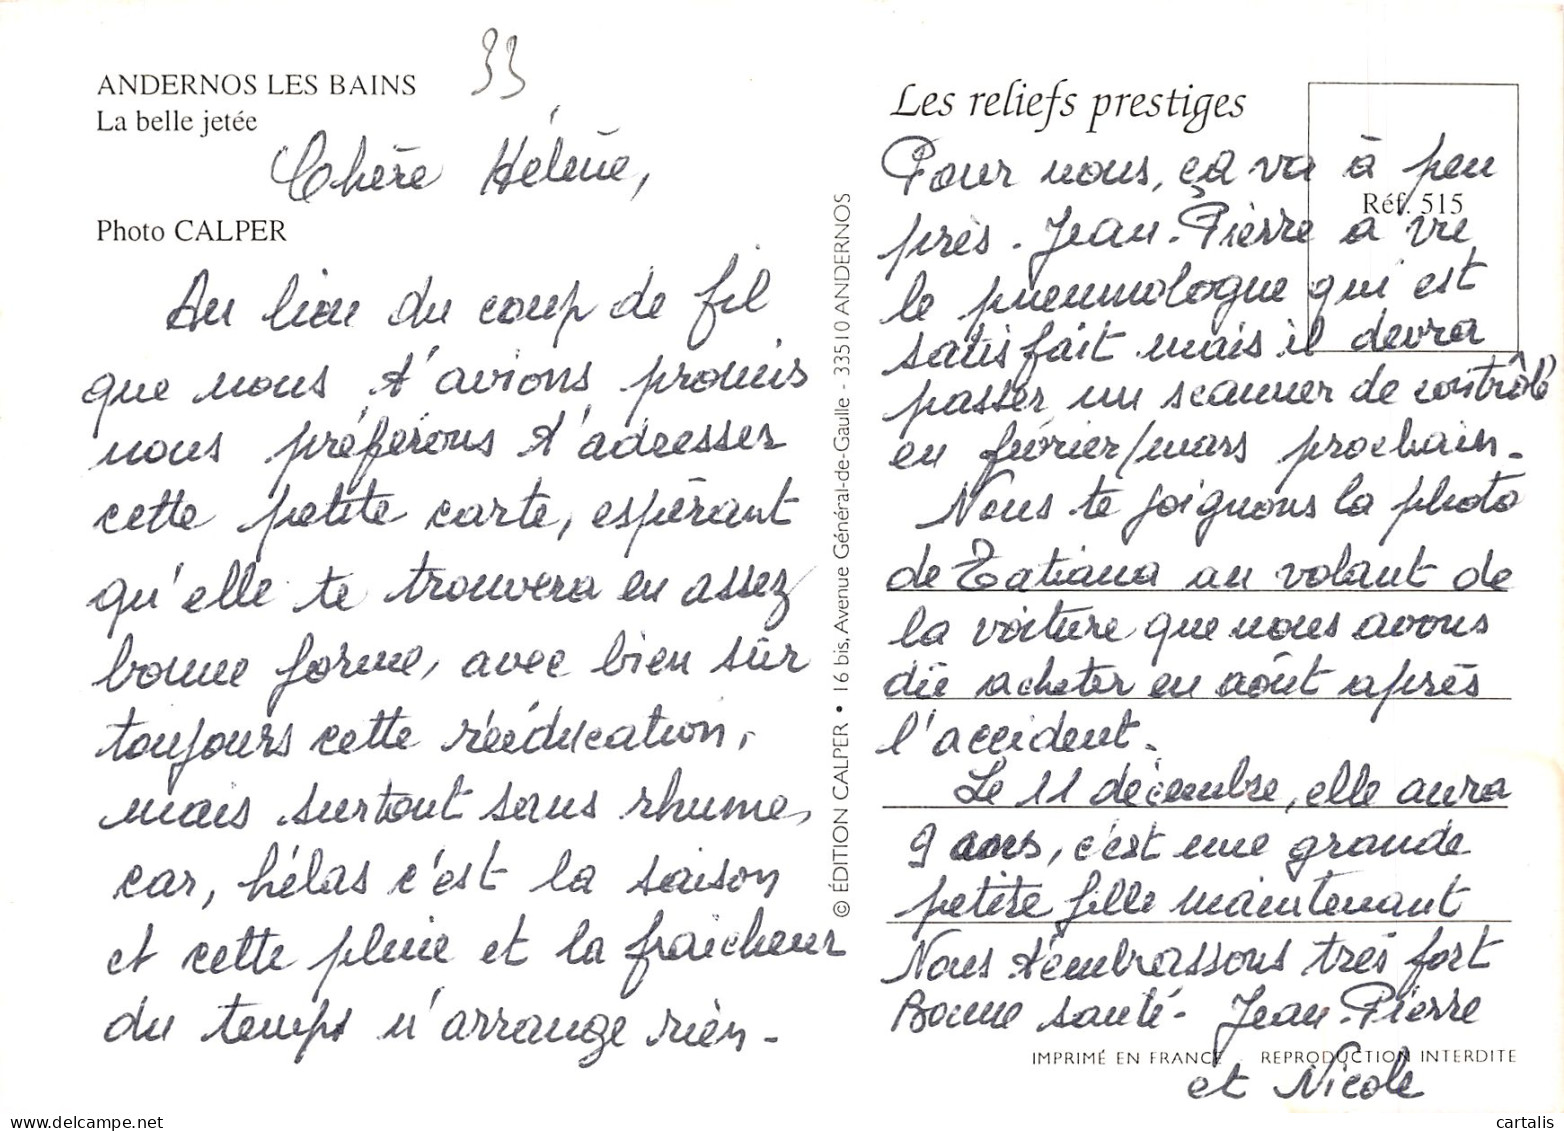 ANDERNOS LES BAINS
La belle jetée
33
Chère Hélène,
Photo CALPER
Au lieu du coup de fil
que nous t'avions promis
nous préférons t'adresser
cette petite carte, espérant
qu'elle te trouvera en assez
bonne forme, avec bien sûr
toujours cette rééducation,
mais surtout sans rhume,
car, hélas c'est la saison
et cette pluie et la fraîcheur
du temps n'arrange rien -
© ÉDITION CALPER • 16 bis, Avenue Général-de-Gaulle - 33510 ANDERNOS
Les reliefs prestiges
Réf. 515
Pour nous, ça va à peu
près. Jean-Pierre a vu
le pneumologue qui est
satisfait mais il devra
passer un scanner de contrôle
en février/mars prochain.
Nous te joignons la photo
de Tatiana au volant de
la voiture que nous avons
dû acheter en août après
l'accident.
Le 11 décembre, elle aura
9 ans, c'est une grande
petite fille maintenant
Nous t'embrassons très fort
Bonne santé - Jean-Pierre
IMPRIMÉ EN FRANCE - REPRODUCTION INTERDITE
et Nicole
cartalis
www.delcampe.net